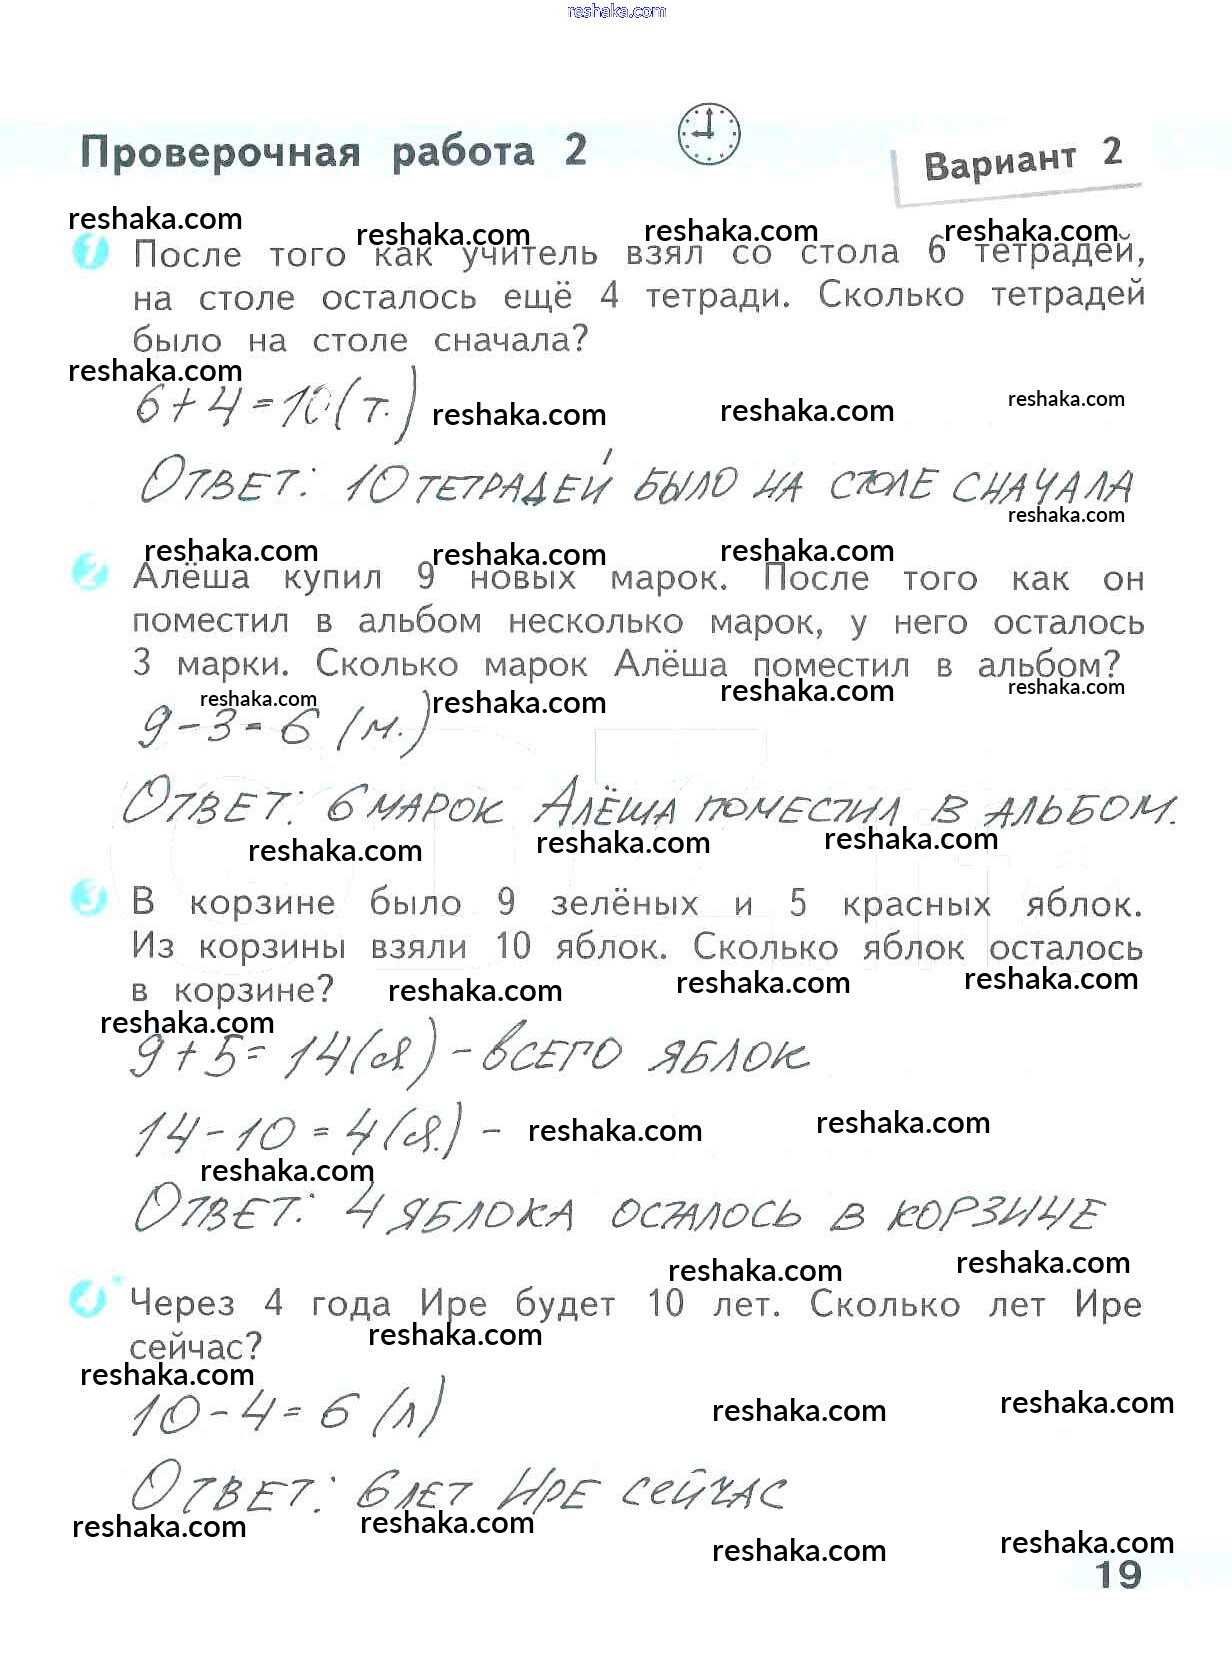 reshaka.com
Проверочная работа 2
Вариант 2
reshaka.com reshaka.com reshaka.com reshaka.com
1 После того как учитель взял со стола 6 тетрадей,
на столе осталось ещё 4 тетради. Сколько тетрадей
было на столе сначала?
reshaka.com
6+4=10(т.) reshaka.com reshaka.com reshaka.com
Ответ: 10 тетрадей было на столе сначала
reshaka.com
reshaka.com reshaka.com reshaka.com
2 Алёша купил 9 новых марок. После того как он
поместил в альбом несколько марок, у него осталось
3 марки. Сколько марок Алёша поместил в альбом?
reshaka.com reshaka.com reshaka.com reshaka.com
9-3=6 (м.)
Ответ: 6 марок Алёша поместил в альбом.
reshaka.com reshaka.com reshaka.com
3 В корзине было 9 зелёных и 5 красных яблок.
Из корзины взяли 10 яблок. Сколько яблок осталось
в корзине? reshaka.com reshaka.com reshaka.com
reshaka.com
9+5=14(я) - всего яблок
14-10=4(я.) - reshaka.com reshaka.com
reshaka.com
Ответ: 4 яблока осталось в корзине
reshaka.com reshaka.com
4* Через 4 года Ире будет 10 лет. Сколько лет Ире
сейчас? reshaka.com
reshaka.com
10-4=6 (л) reshaka.com reshaka.com
Ответ: 6 лет Ире сейчас
reshaka.com reshaka.com reshaka.com reshaka.com
19